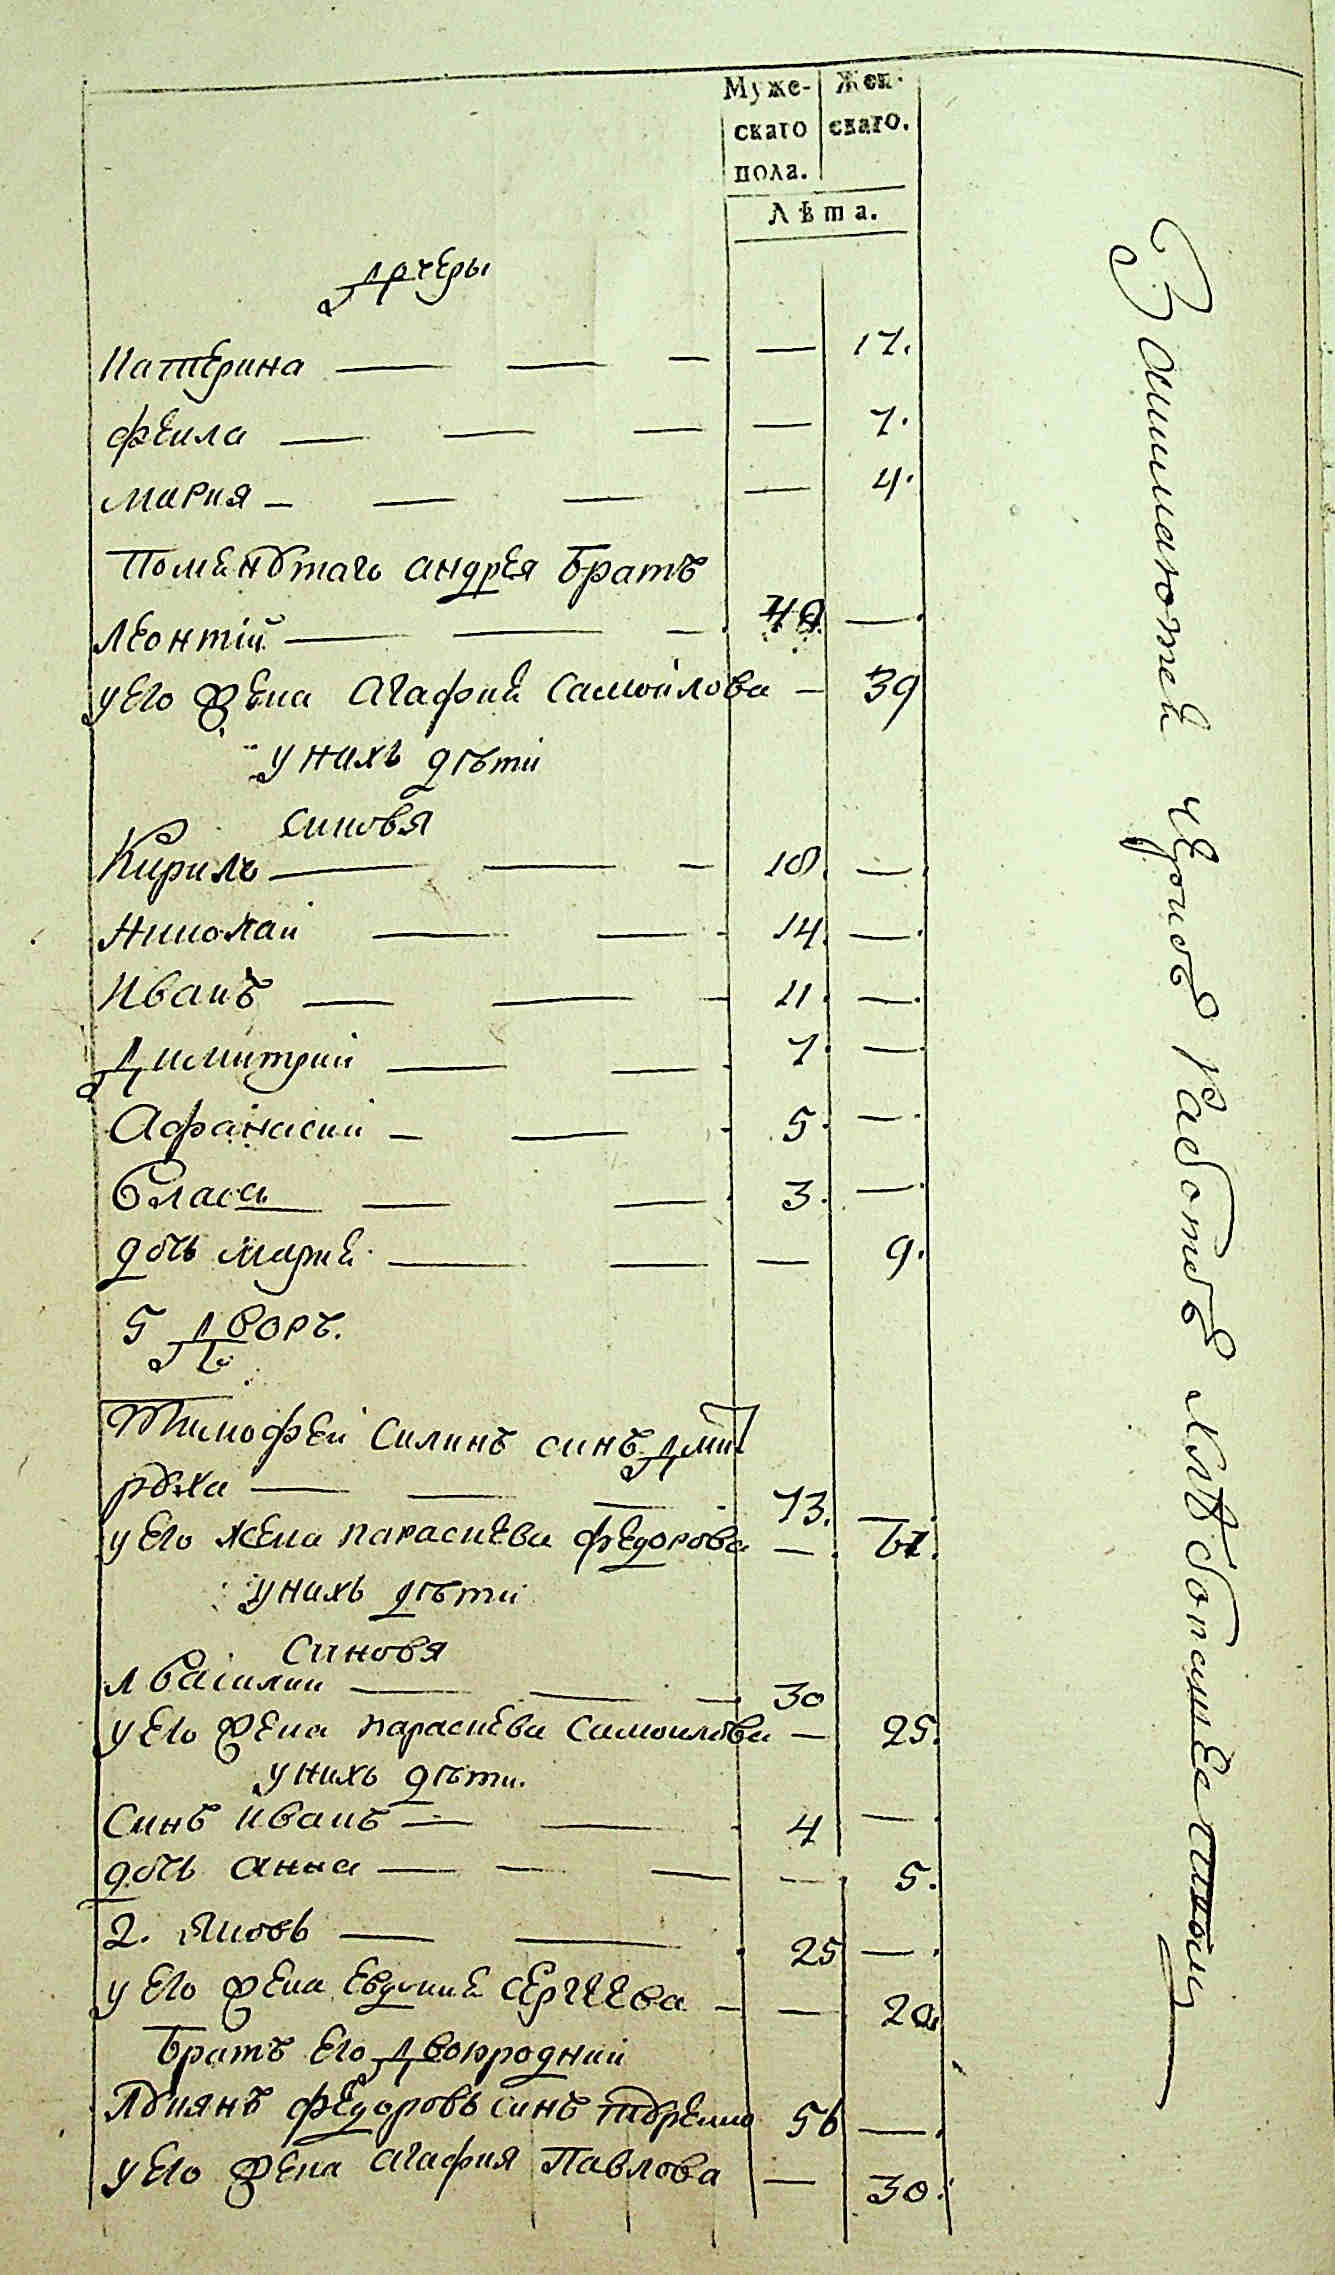 Муже-
скаго
пола.
Жен-
скаго.
Лѣта.
Дочеры
Катерина — — — — 17.
Фекла — — — — 7.
Мария — — — — 4.
Помянутаго Андрея Братъ
Леонтій — — — 40 —
у его Жена Агафия Самойлова — 39
у нихъ дѣти
синовя
Кирилъ — — — 18. —
Николай — — 14. —
Иванъ — — — 11. —
Димитрий — — 7. —
Афанасий — — 5. —
Власъ — — 3. —
дочь Мария — — — 9.
5 Дворъ.
Тимофей Силинъ синъ Дми
руха — — — 73. —
у его Жена Параскева Федорова — 61.
у нихъ дѣти
Синовя
1 Василий — — — 30
у его Жена Параскева Самоилова — 25.
у нихъ дѣти.
Синъ Иванъ — — 4 —
дочь Анна — — — — 5.
2. Яковъ — — 25 —
у его Жена Евдокия Сергеева — — 20.
Братъ его Двоюродний
Лукиянъ Федоровъ синъ 56 —
у его Жена Агафия Павлова — 30.
Занимаются
работою